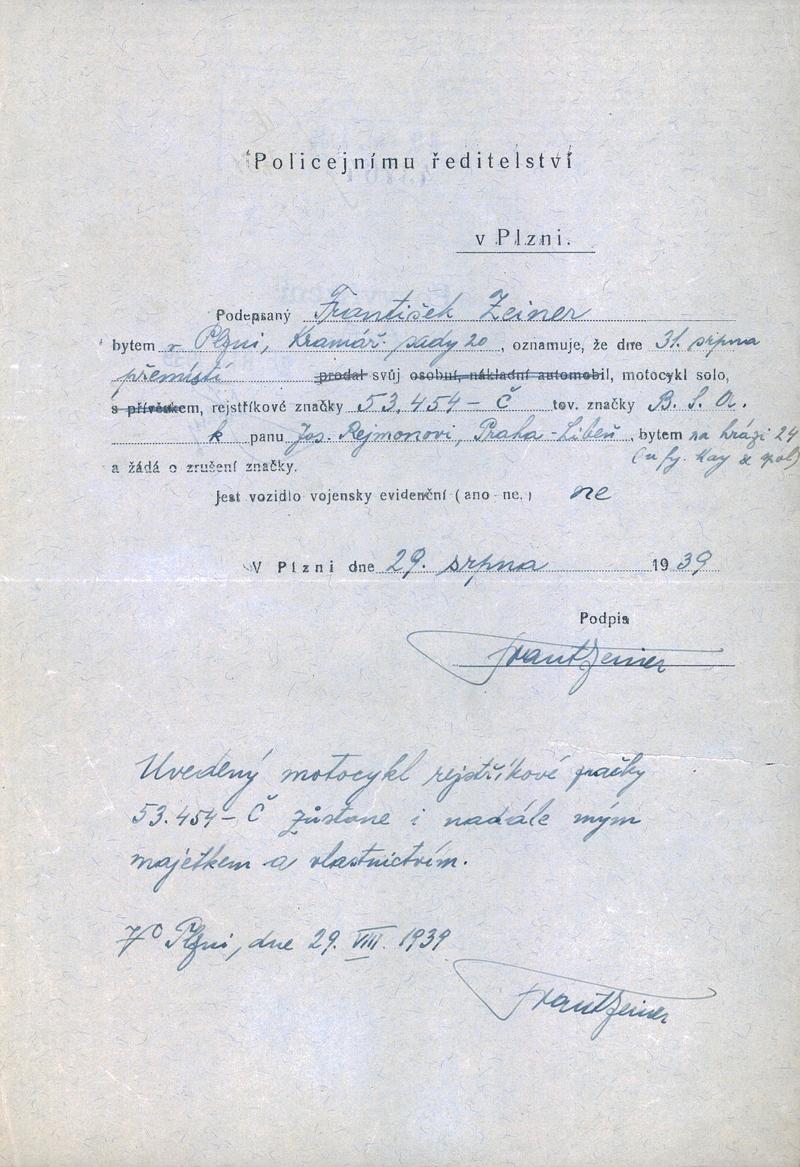 Policejnímu ředitelství
v Plzni.
Podepsaný František Zeiner
bytem v Plzni, Kramář. sady 20, oznamuje, že dne 31. srpna
přemístí prodal svůj osobní, nákladní automobil, motocykl solo,
s přívěskem, rejstříkové značky 53.454-Č tov. značky B. S. A.
k panu Jos. Rejmonovi, Praha-Libeň, bytem na hrázi 24
(u fy. Kay & spol)
a žádá o zrušení značky.
Jest vozidlo vojensky evidenční (ano-ne.) ne
V Plzni dne 29. srpna 1939
Podpis
Frant Zeiner
Uvedený motocykl rejstříkové značky
53.454-Č zůstane i nadále mým
majetkem a vlastnictvím.
V Plzni, dne 29. VIII. 1939
Frant Zeiner